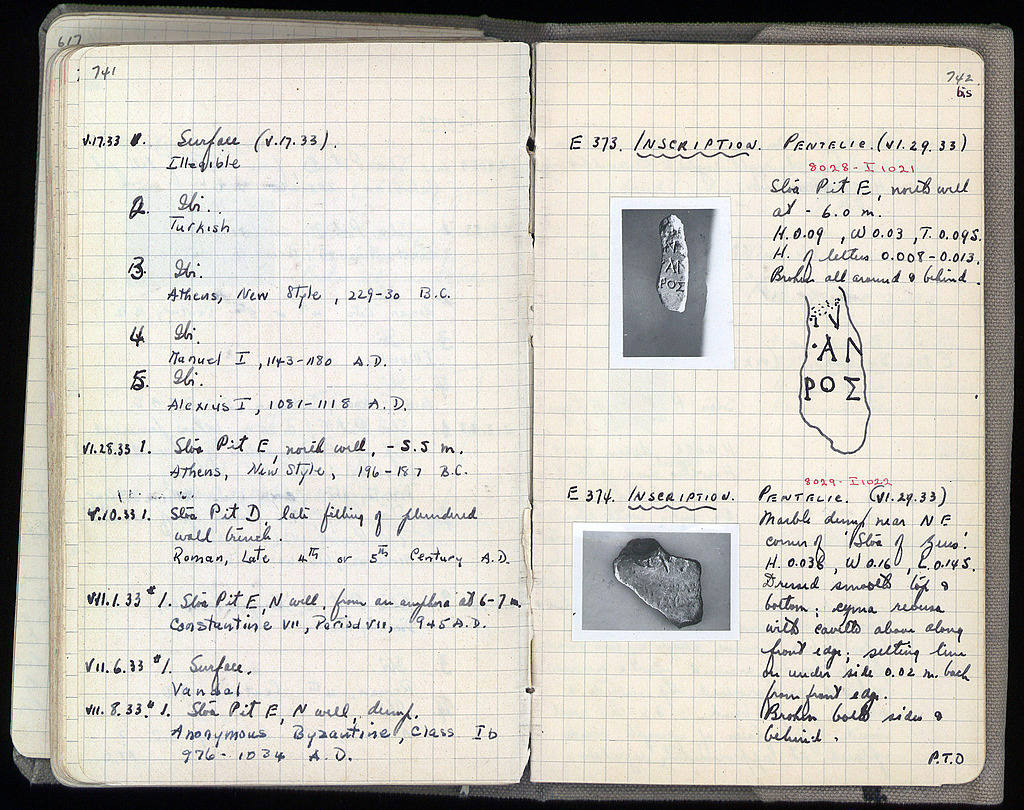 617
741
V.17.33 1. Surface (V.17.33).
Illegible
2. Ibi.
Turkish
3. Ibi.
Athens, New Style, 229-30 B.C.
4. Ibi.
Manuel I, 1143-1180 A.D.
5. Ibi.
Alexius I, 1081-1118 A.D.
VI.28.33 1. Stoa Pit E, north well, -5.5 m.
Athens, New Style, 196-187 B.C.
V.10.33 1. Stoa Pit D, late filling of plundered
wall trench.
Roman, Late 4th or 5th Century A.D.
VII.1.33 #1. Stoa Pit E, N well, from an amphora at 6-7 m.
Constantine VII, Period VII, 945 A.D.
VII.6.33 #1. Surface.
Vandal
VII.8.33 #1. Stoa Pit E, N well, dump.
Anonymous Byzantine, Class Ib
976-1034 A.D.
742
bis
E 373. INSCRIPTION. PENTELIC. (VI.29.33)
8028-I 1021
Stoa Pit E, north well
at -6.0 m.
H. 0.09, W 0.03, T. 0.095.
H. of letters 0.008-0.013.
Broken all around & behind.
ΑΝ
ΡΟΣ
E 374. INSCRIPTION. PENTELIC. (VI.29.33)
8029-I 1022
Marble dump near NE
corner of 'Stoa of Zeus'.
H. 0.038, W 0.16, L. 0.145.
Dressed smooth top &
bottom; cyma reversa
with cavetto above along
front edge; setting line
on under side 0.02 m. back
from front edge.
Broken both sides &
behind.
P.T.O